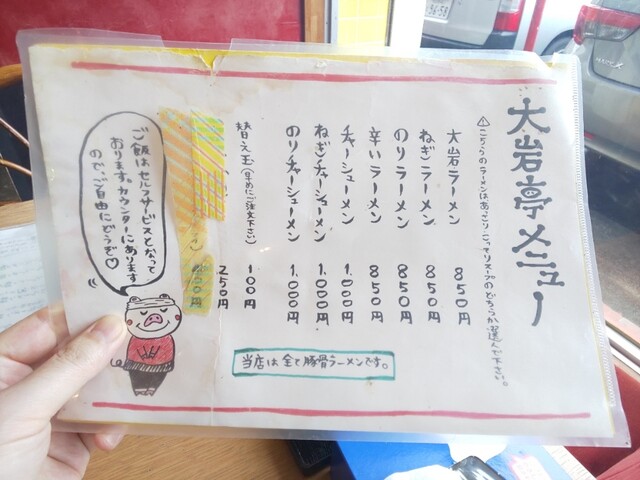 大岩亭メニュー
⚠こちらのラーメンはあっさり・こってりスープのどちらか選んで下さい。
大岩ラーメン 850円
ねぎラーメン 850円
のりラーメン 850円
辛いラーメン 850円
チャーシューメン 1.000円
ねぎチャーシューメン 1.000円
のりチャーシューメン 1.000円
替え玉(早めにご注文下さい) 100円
250円
当店は全て豚骨ラーメンです。
ご飯はセルフサービスとなって
おります。カウンターにあります
ので、ご自由にどうぞ♡